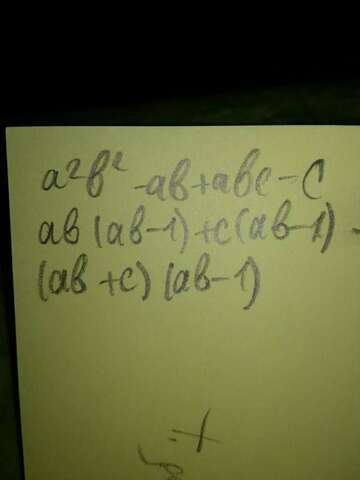 a²b² -ab+abc-c
ab(ab-1)+c(ab-1) -
(ab+c)(ab-1)